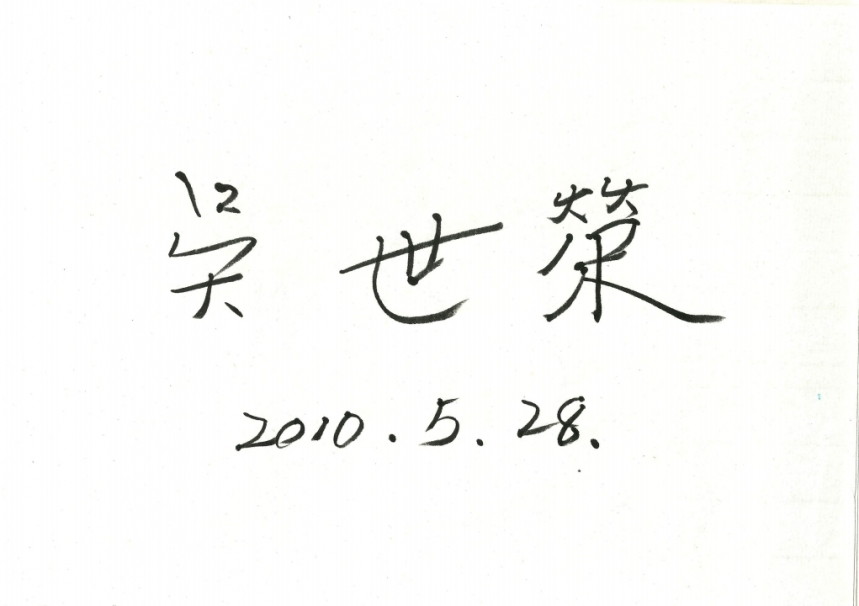 吴世策
2010.5.28.